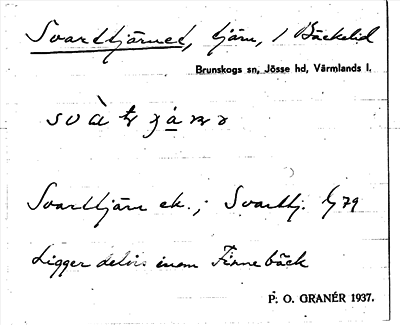 Svarttjärnet, tjärn, i Bäckelid
Brunskogs sn, Jösse hd, Värmlands l.
Svarttjärn ek.; Svarttj.
Ligger delvis inom Finnebäck
P. O. GRANÉR 1937.